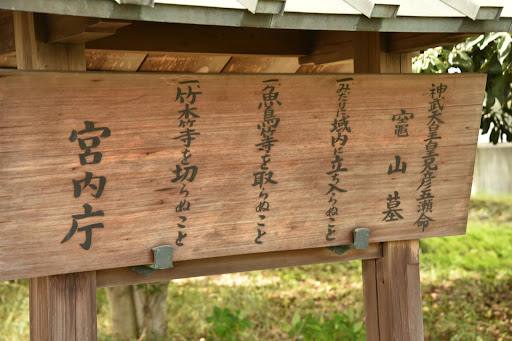 神武天皇皇兄彦五瀬命
竈山墓
一、みだりに域内に立ち入らぬこと
一、魚鳥等を取らぬこと
一、竹木等を切らぬこと
宮内庁